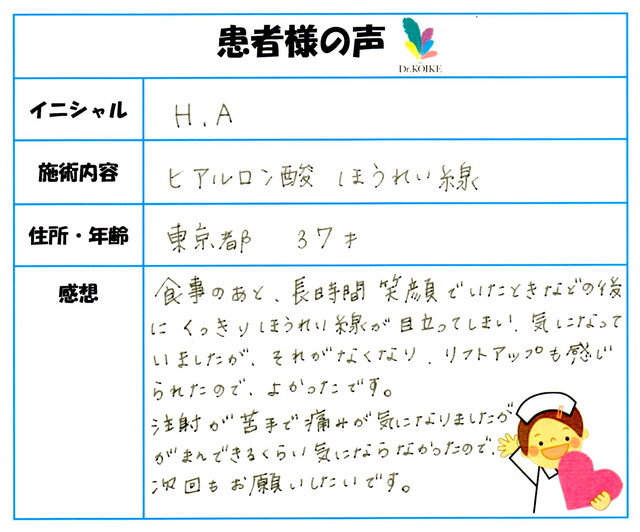 患者様の声
Dr.KOIKE
イニシャル H.A
施術内容 ヒアルロン酸 ほうれい線
住所・年齢 東京都 37才
感想 食事のあと、長時間笑顔でいたときなどの後
にくっきりほうれい線が目立ってしまい、気になって
いましたが、それがなくなり、リフトアップも感じ
られたので、よかったです。
注射が苦手で痛みが気になりましたが
がまんできるくらい気にならなかったので、
次回もお願いしたいです。